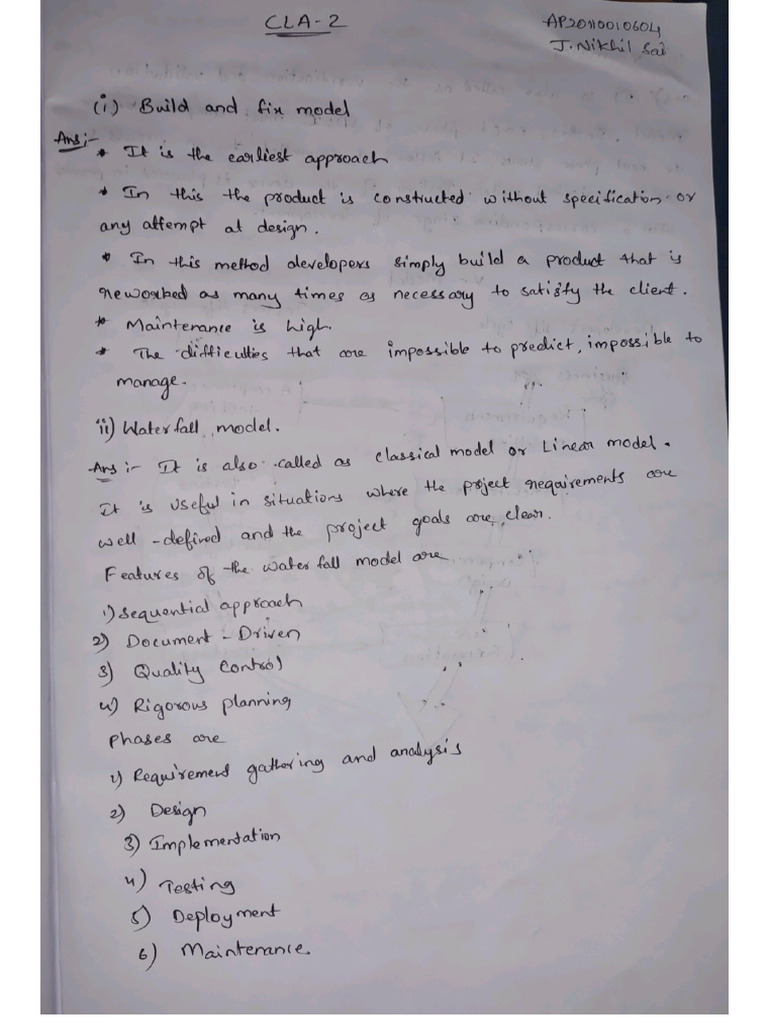 CLA-2
AP20110010604
J. Nikhil Sai
(i) Build and fix model
Ans:-
* It is the earliest approach
* In this the product is constructed without specification or
any attempt at design.
* In this method developers simply build a product that is
reworked as many times as necessary to satisfy the client.
* Maintenance is high.
* The difficulties that are impossible to predict, impossible to
manage.
ii) Water fall model.
Ans:- It is also called as classical model or Linear model.
It is useful in situations where the project requirements are
well-defined and the project goals are clear.
Features of the water fall model are
1) Sequential approach
2) Document-Driven
3) Quality Control
4) Rigorous planning
Phases are
1) Requirement gathering and analysis
2) Design
3) Implementation
4) Testing
5) Deployment
6) Maintenance.